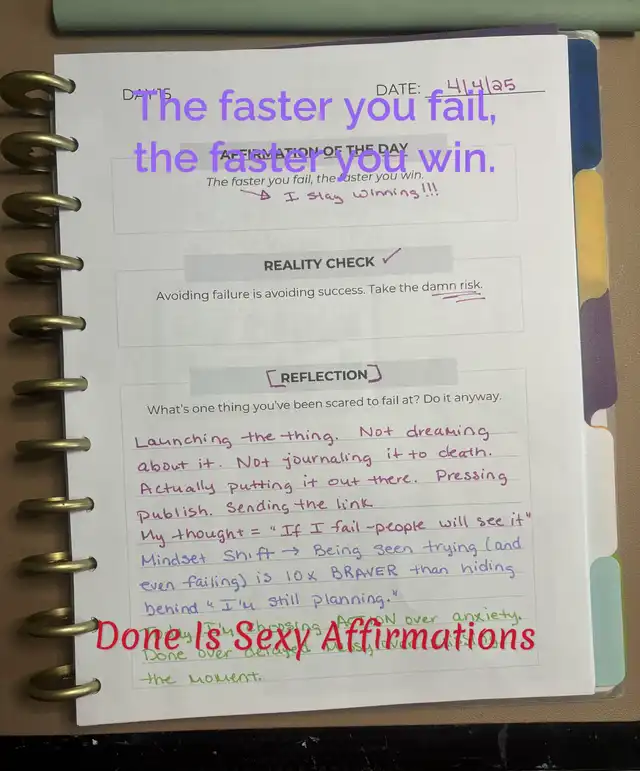 DAY 15
DATE: 4/4/25
The faster you fail,
the faster you win.
AFFIRMATION OF THE DAY
The faster you fail, the faster you win.
I stay winning!!!
REALITY CHECK ✓
Avoiding failure is avoiding success. Take the damn risk.
[REFLECTION]
What's one thing you've been scared to fail at? Do it anyway.
Launching the thing. Not dreaming
about it. Not journaling it to death.
Actually putting it out there. Pressing
publish. Sending the link
My thought = "If I fail - people will see it"
Mindset Shift → Being seen trying (and
even failing) is 10x BRAVER than hiding
behind "I'm still planning."
Today I'm choosing ACTION over anxiety.
Done Is Sexy Affirmations
Done over delayed. Messy over
the moment.